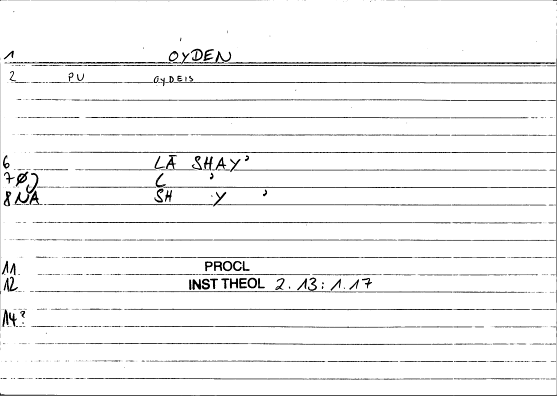 1 OYDEN
2 PU OYDEIS
6 LĀ SHAY'
7 Ø) L '
8 NA SH Y '
11 PROCL
12 INST THEOL 2.13:1.17
14?